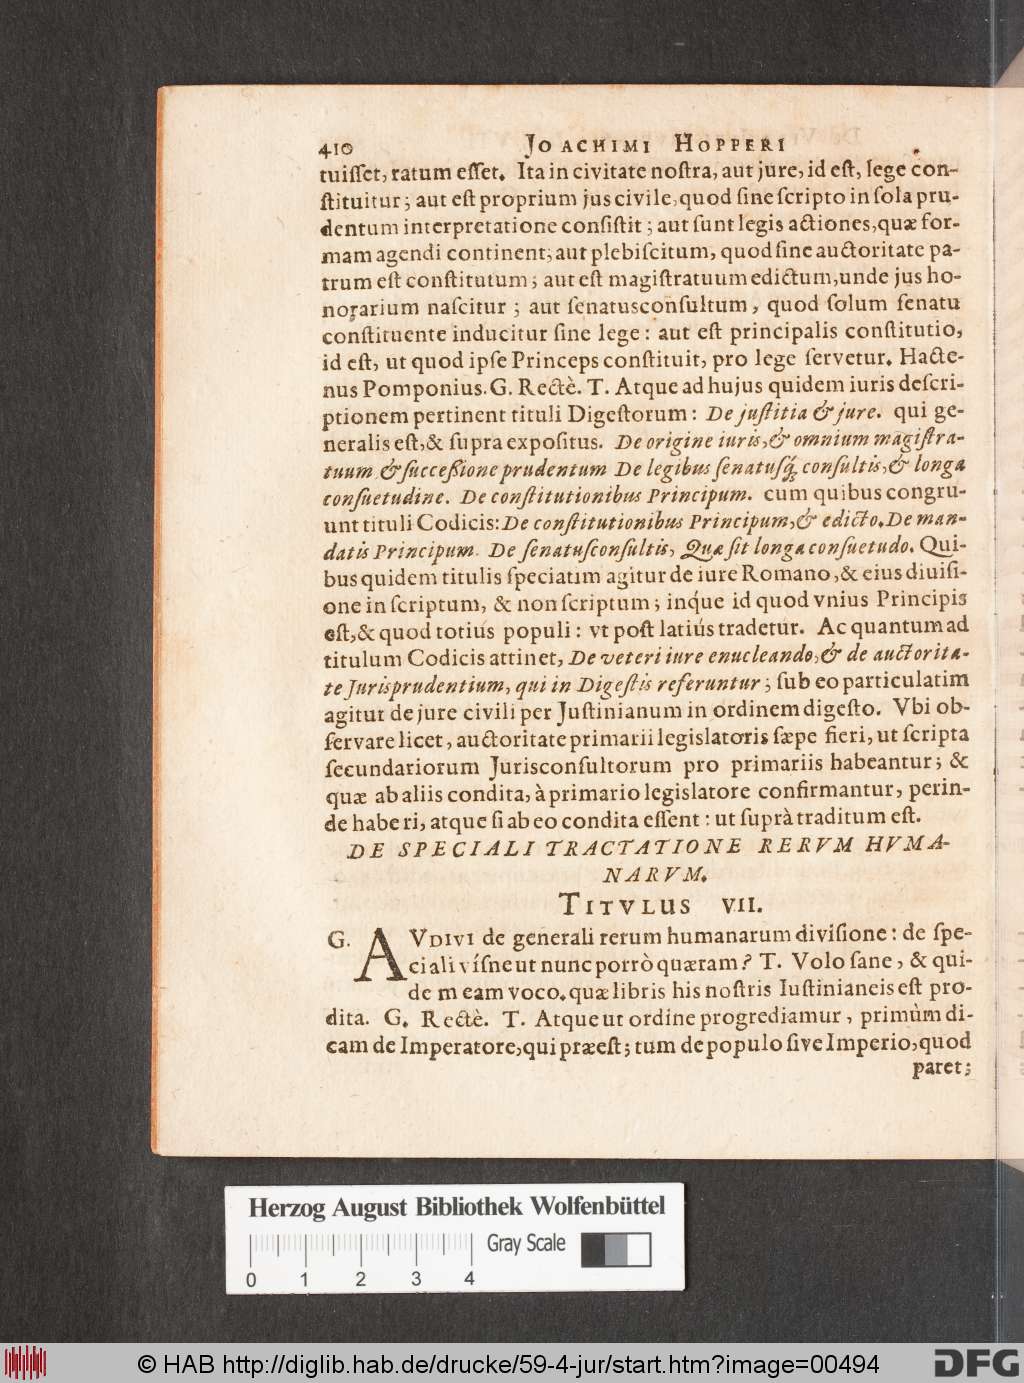 410 JOACHIMI HOPPERI
tuiſſet, ratum eſſet. Ita in civitate noſtra, aut jure, id eſt, lege con-
ſtituitur; aut eſt proprium jus civile, quod ſine ſcripto in ſola pru-
dentum interpretatione conſiſtit; aut ſunt legis actiones, quæ for-
mam agendi continent; aut plebiſcitum, quod ſine auctoritate pa-
trum eſt conſtitutum; aut eſt magiſtratuum edictum, unde jus ho-
norarium naſcitur; aut ſenatusconſultum, quod ſolum ſenatu
conſtituente inducitur ſine lege: aut eſt principalis conſtitutio,
id eſt, ut quod ipſe Princeps conſtituit, pro lege ſervetur. Hacte-
nus Pomponius. G. Rectè. T. Atque ad hujus quidem iuris deſcri-
ptionem pertinent tituli Digeſtorum: De juſtitia & jure. qui ge-
neralis eſt, & ſupra expoſitus. De origine iuris, & omnium magiſtra-
tuum & ſucceßione prudentum De legibus ſenatuſq́; conſultis, & longa
conſuetudine. De conſtitutionibus Principum. cum quibus congru-
unt tituli Codicis: De conſtitutionibus Principum, & edicto. De man-
datis Principum. De ſenatuſconſultis, Quæ ſit longa conſuetudo. Qui-
bus quidem titulis ſpeciatim agitur de iure Romano, & eius diuiſi-
one in ſcriptum, & non ſcriptum; inq́ue id quod vnius Principis
eſt, & quod totius populi: vt poſt latiùs tradetur. Ac quantum ad
titulum Codicis attinet, De veteri iure enucleando, & de auctorita-
te Jurisprudentium, qui in Digeſtis referuntur; ſub eo particulatim
agitur de jure civili per Juſtinianum in ordinem digeſto. Vbi ob-
ſervare licet, auctoritate primarii legislatoris ſæpe fieri, ut ſcripta
ſecundariorum Jurisconſultorum pro primariis habeantur; &
quæ ab aliis condita, à primario legislatore confirmantur, perin-
de haberi, atque ſi ab eo condita eſſent: ut ſuprà traditum eſt.
DE SPECIALI TRACTATIONE RERVM HVMA-
NARVM.
TITVLUS VII.
G. AVDIVI de generali rerum humanarum diviſione: de ſpe-
ciali víſne ut nunc porrò quæram? T. Volo ſane, & qui-
dem eam voco, quæ libris his noſtris Iuſtinianeis eſt pro-
dita. G. Rectè. T. Atque ut ordine progrediamur, primùm di-
cam de Imperatore, qui præeſt; tum de populo ſive Imperio, quod
paret;
Herzog August Bibliothek Wolfenbüttel
Gray Scale
0 1 2 3 4
© HAB http://diglib.hab.de/drucke/59-4-jur/start.htm?image=00494
DFG